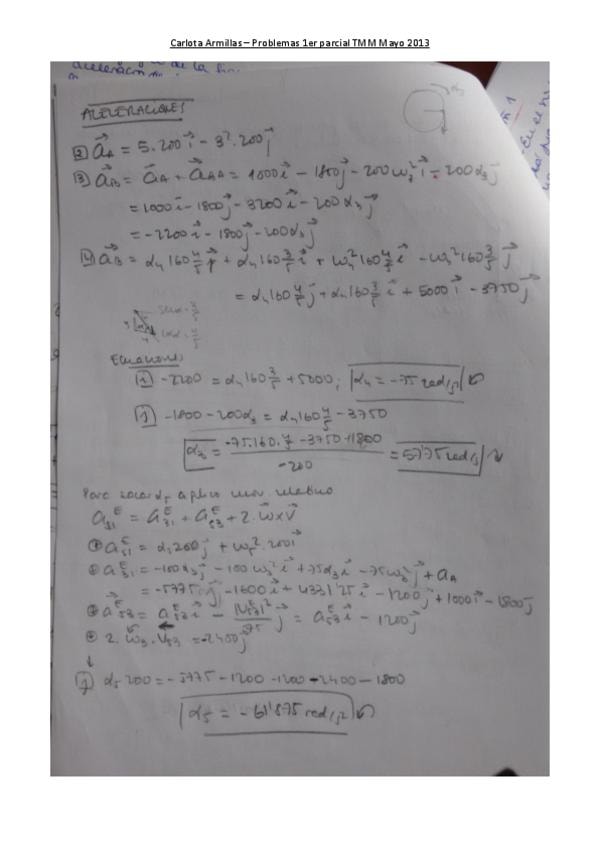 Carlota Armillas – Problemas 1er parcial TMM Mayo 2013
aceleración de la
ACELERACIONES
[2] a⃗A = 5·200 i⃗ - 3²·200 j⃗
[3] a⃗B = a⃗A + a⃗AA = 1000 i⃗ - 1800 j⃗ - 200 ω₃² i⃗ - 200 α₃ j⃗
= 1000 i⃗ - 1800 j⃗ - 3200 i⃗ - 200 α₃ j⃗
= -2200 i⃗ - 1800 j⃗ - 200 α₃ j⃗
[4] a⃗B = α₄ 160 4/5 j⃗ + α₄ 160 3/5 i⃗ + ω₄² 160 4/5 i⃗ - ω₄² 160 3/5 j⃗
= α₄ 160 4/5 j⃗ + α₄ 160 3/5 i⃗ + 5000 i⃗ - 3750 j⃗
senα = 3/5
cosα = 4/5
Ecuaciones
[i] -2200 = α₄ 160 3/5 + 5000; α₄ = -75 rad/s²
[j] -1800 - 200 α₃ = α₄ 160 4/5 - 3750
α₃ = (-75·160·4/5 - 3750 + 1800) / -200 = 57'75 rad/s
Para sacar α₅ aplico mov. relativo
a51^E = a31^E + a53^E + 2·ω⃗×v⃗
① a51^E = α₅ 200 j⃗ + ω₅² · 200 i⃗
② a31^E = -100 α₃ j⃗ - 100 ω₃² i⃗ + 75 α₃ i⃗ - 75 ω₃² j⃗ + aA
= -5775 j⃗ - 1600 i⃗ + 4331'25 i⃗ - 1200 j⃗ + 1000 i⃗ - 1800 j⃗
③ a⃗53^E = a53^E i⃗ - |V53^E|²/75 j⃗ = a53^E i⃗ - 1200 j⃗
④ 2·ω⃗₃·V⃗53 = -2400 j⃗
[j] α₅ 200 = -5775 - 1200 - 1200 - 2400 - 1800
α₅ = -61'875 rad/s²